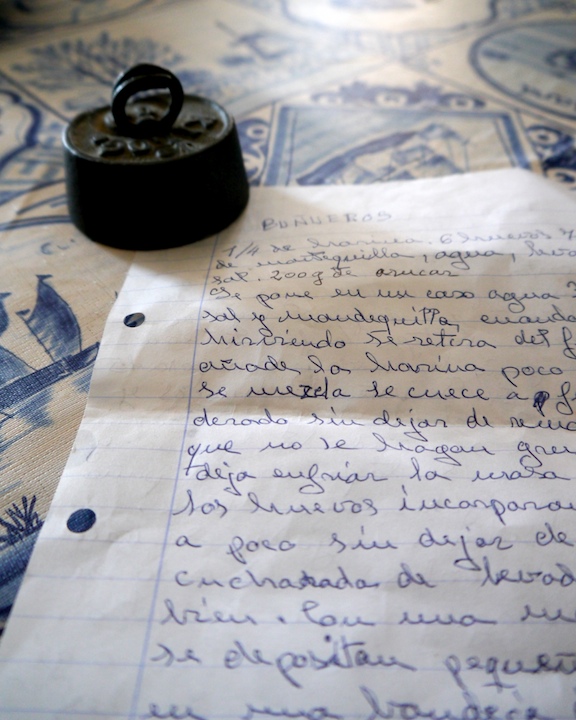 BUÑUEROS
1/4 de harina. 6 huevos
de mantequilla, agua,
sal. 200 g de azucar
Se pone en un caso agua
sal y mandequilla, cuando
hirviendo se retira del f
añade la harina poco
se mezcla se cuece a f
derado sin dejar de rem
que no se hagan gru
deja enfriar la masa
los huevos incorporan
a poco sin dejar de
cucharada de levad
bien. Con una m
se depositan pequeñ
en una bandeja